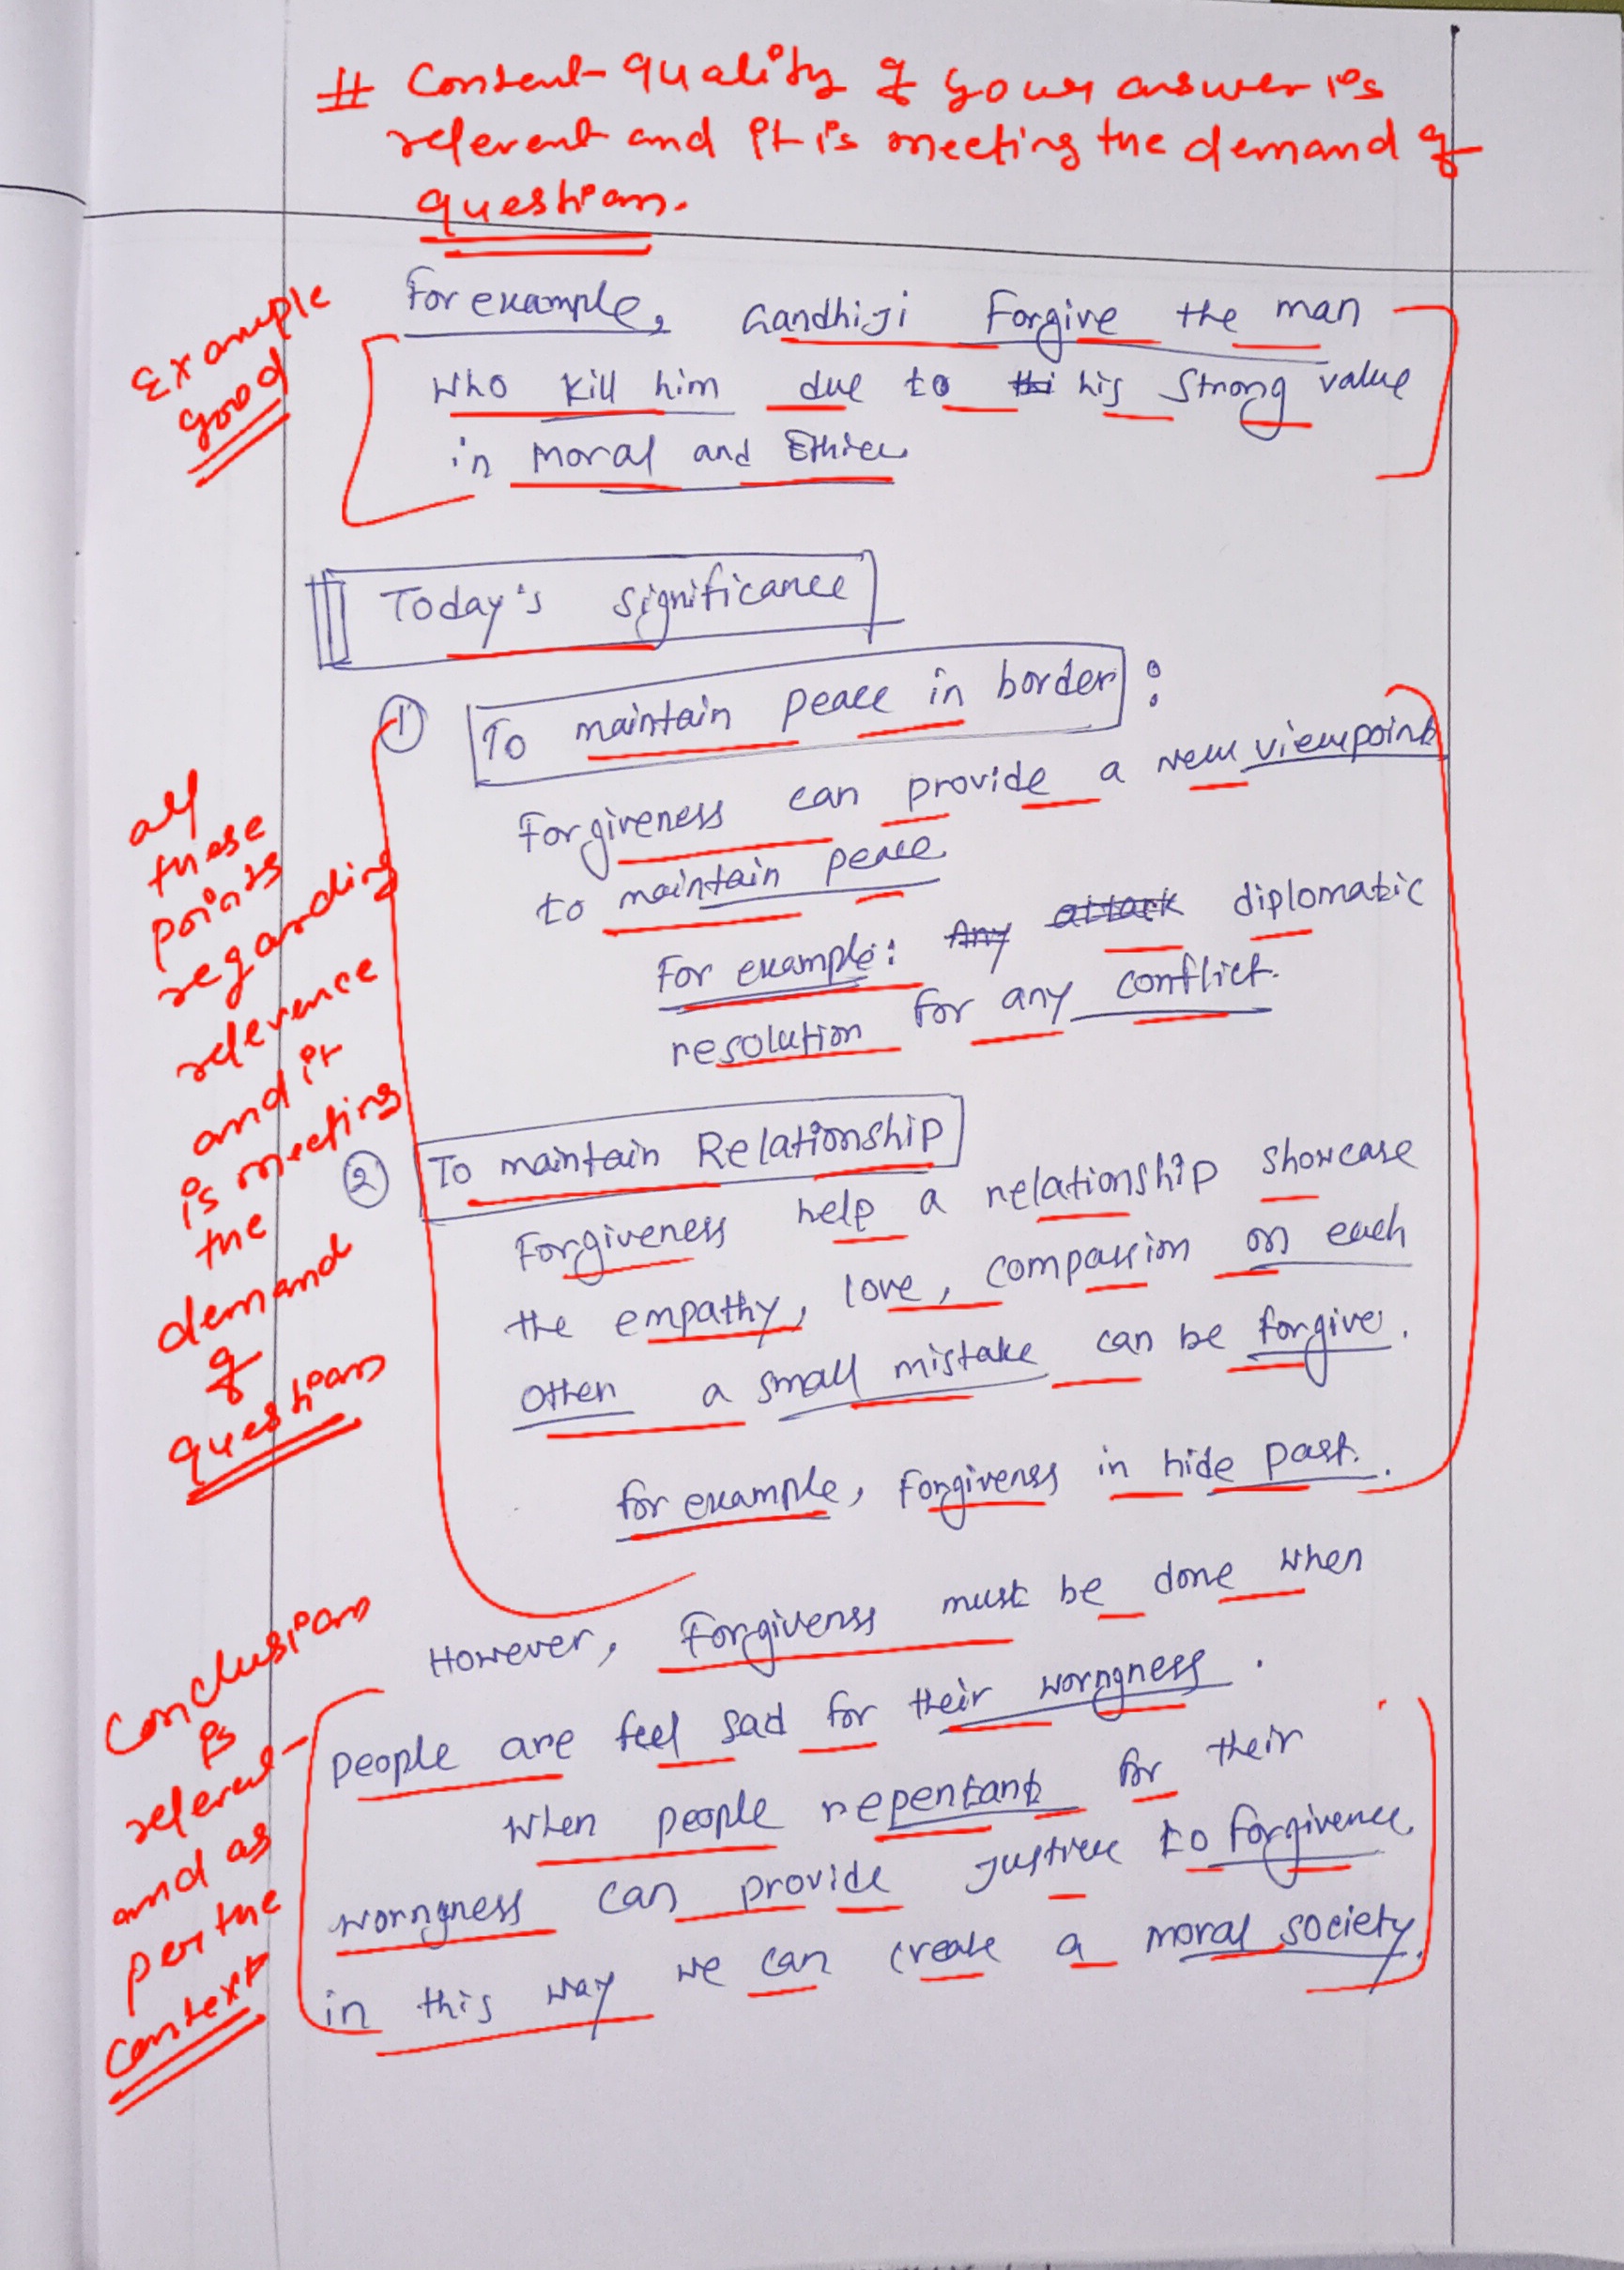 # Content quality of your answer is
relevent and it is meeting the demand of
question.
Example
good
For example, Gandhiji Forgive the man
who kill him due to thi his strong value
in moral and Ethics
Today's significance
① To maintain peace in border :
Forgiveness can provide a new viewpoint
to maintain peace
For example: Any attack diplomatic
resolution for any conflict.
② To maintain Relationship
Forgiveness help a relationship showcase
the empathy, love, compassion on each
other a small mistake can be forgive.
for example, Forgivenss in hide past.
all
these
points
regarding
relevence
and it
is meeting
the
demand
of
question
However, Forgivenss must be done when
people are feel sad for their worngness.
when people repentant for their
worngness can provide justice to forgivence.
in this way we can create a moral society.
Conclusion
is
relevent
and as
per the
context